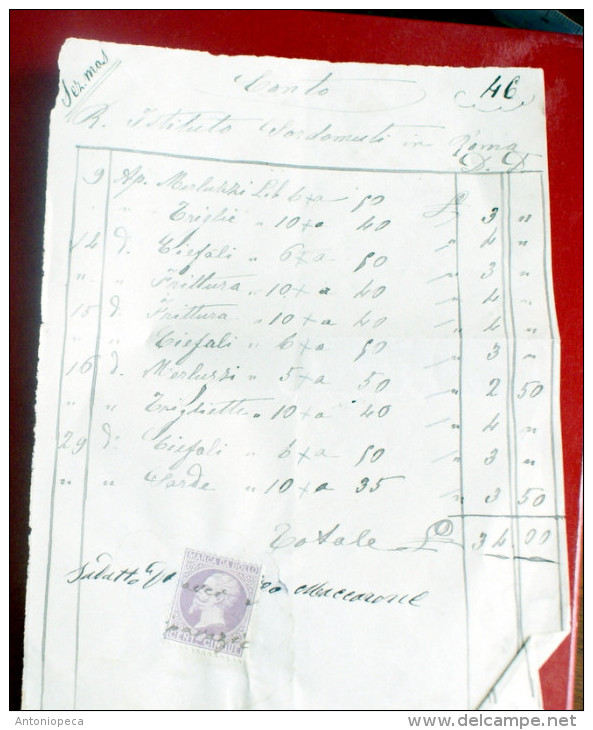 Conto
46
R. Istituto Sordomuti in Roma
D. D.
9 Ap. Merluzzi Lib 6 x a 50 £ 3 "
" " Triglie " 10 x a 40 " 4 "
14 d. Ciefali " 6 x a 50 " 3 "
" " Frittura " 10 x a 40 " 4 "
15 d. Frittura " 10 x a 40 " 4 "
" " Ciefali " 6 x a 50 " 3 "
16 d. Merluzzi " 5 x a 50 " 2 50
" " Trigliette " 10 x a 40 " 4 "
29 d. Ciefali " 6 x a 50 " 3 "
" " Sarde " 10 x a 35 " 3 50
Totale £ 34.00
MARCA DA BOLLO
Saldato Maccarone
CENT. CINQUE
Antoniopeca
www.delcampe.net